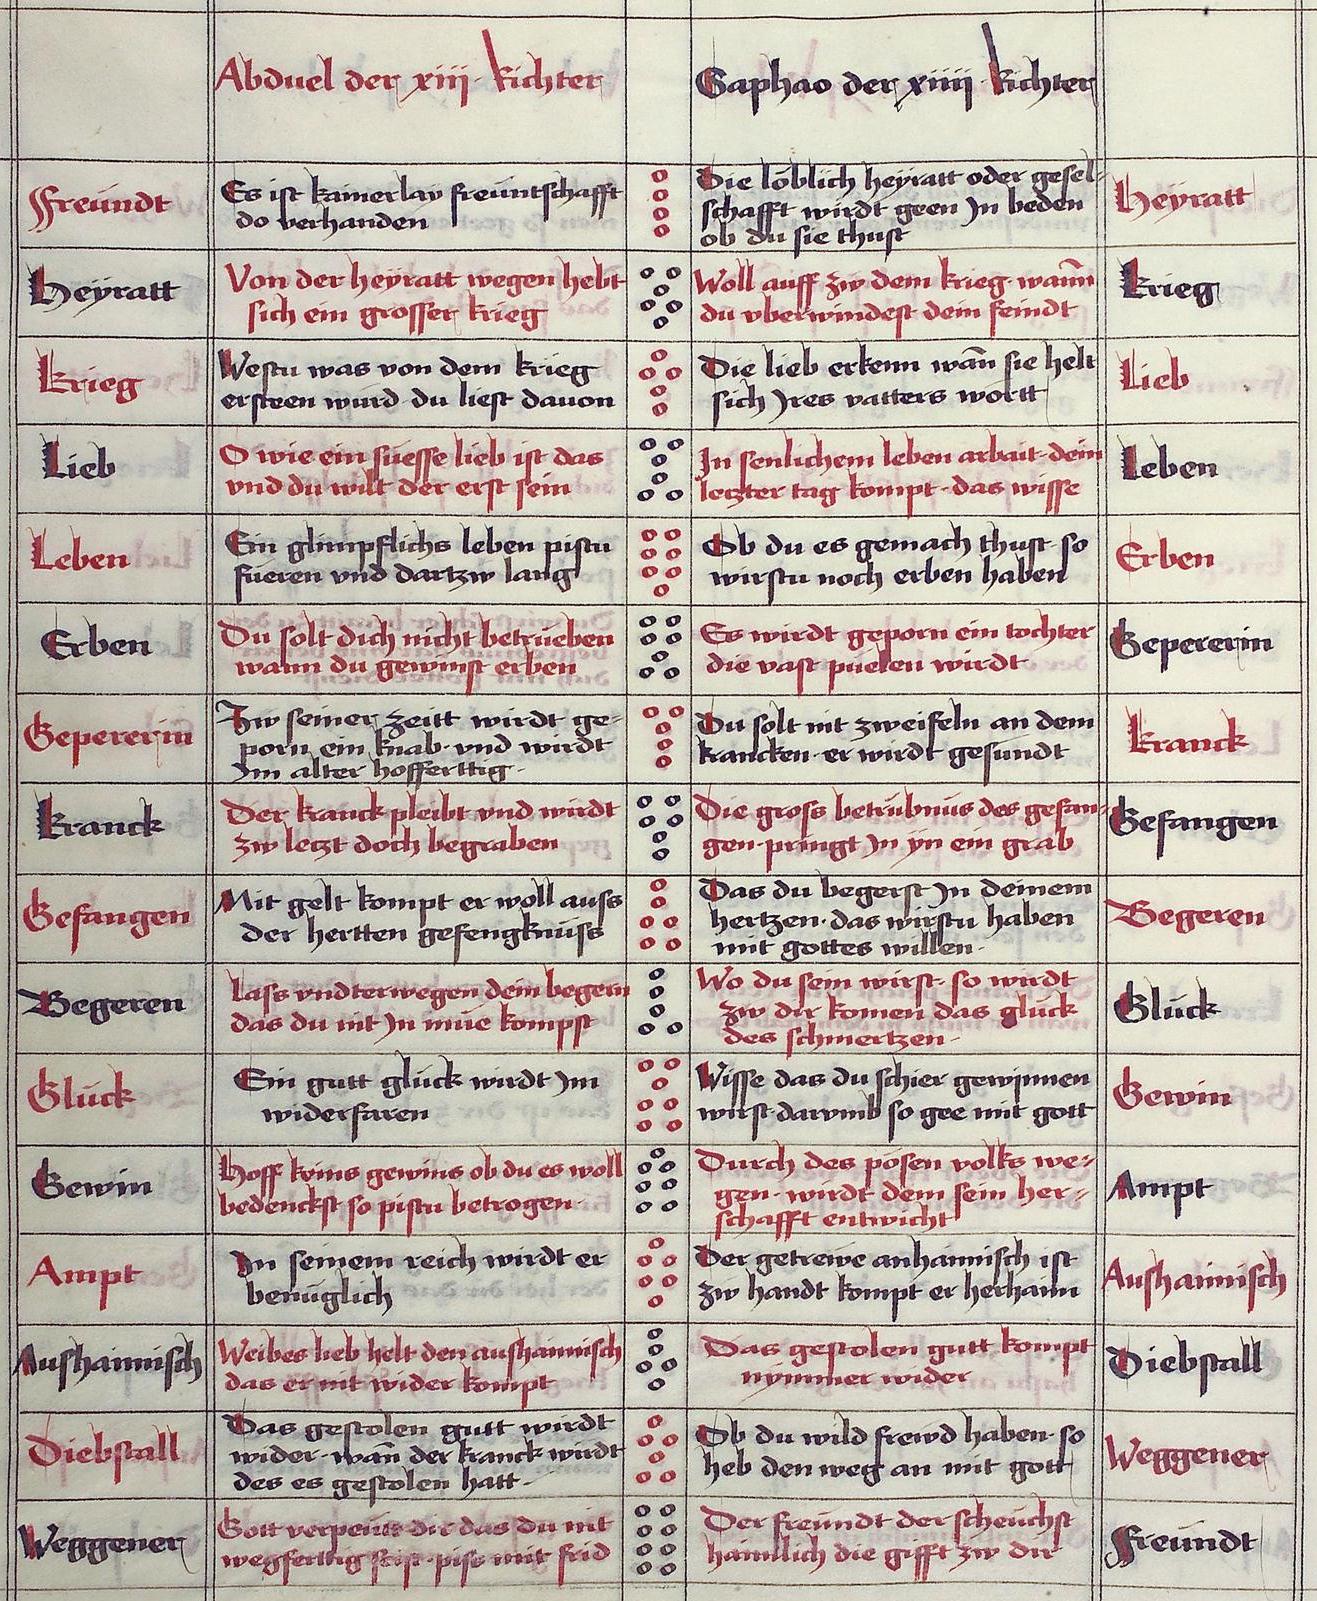 Abduel der xiij Richter
Gaphao der xiiij Richter
Freündt
Es ist kainerlay freüntschafft
do verhanden
Die löblich heyratt oder gesel-
schafft wirdt geen Jn beden
ob du sie thust
Heyratt
Heyratt
Von der heyratt wegen hebt
sich ein grosser krieg
Woll auff zw dem krieg wañ
du vberwindest dein feindt
Krieg
Krieg
Westu was von dem krieg
ersteen wurd du liest dauon
Die lieb erkenn wañ sie helt
sich Jres vatters wortt
Lieb
Lieb
O wie ein süesse lieb ist das
vnd du wilt der erst sein
Jn senlichem leben arbait dein
letzter tag kompt das wisse
Leben
Leben
Ein glimpflichs leben pistu
füeren vnd dartzw lang
Ob du es gemach thust so
wirstu noch erben haben
Erben
Erben
Du solt dich nicht betrüeben
wann du gewinst erben
Es wirdt geporn ein tochter
die vast puelen wirdt
Gepererin
Gepererin
Zw seiner zeitt wirdt ge-
porn ein knab vnd wirdt
Jm alter hofferttig
Du solt nit zweifeln an dem
krancken er wirdt gesundt
Kranck
Kranck
Der kranck pleibt vnd wirdt
zw letzt doch begraben
Die gross betrübnüs des gefan-
gen pringt Jn yn ein grab
Gefangen
Gefangen
Mit gelt kompt er woll auss
der hertten gefengknüss
Das du begerst Jn deinem
hertzen das wirstu haben
mit gottes willen
Begeren
Begeren
Lass vndterwegen dein begern
das du nit Jn müe kompst
Wo du sein wirst so wirdt
zw dir komen das glück
des schmertzen
Glück
Glück
Ein gutt glück wirdt Jm
widerfaren
Wisse das du schier gewinnen
wirst darvmb so gee mit gott
Gewin
Gewin
Hoff keins gewins ob du es woll
bedenckst so pistu betrogen
Durch des pösen volks we-
gen wirdt dem sein her-
schafft entwicht
Ampt
Ampt
Jn seinem reich wirdt er
benüglich
Der getrewe anhaimisch ist
zw handt kompt er herhaim
Aushaimisch
Aushaimisch
Weibes lieb helt den aushaimisch
das er nit wider kompt
Das gestolen gutt kompt
nymmer wider
Diebstall
Diebstall
Das gestolen gutt wirdt
wider wañ der kranck wirdt
des es gestolen hatt
Ob du wild frewd haben so
heb den weg an mit gott
Weggener
Weggener
Gott verpeütt dir das du nit
wegferttig seist piss mit frid
Der freündt der scheüchst
haimlich die gifft zw dir
Freündt